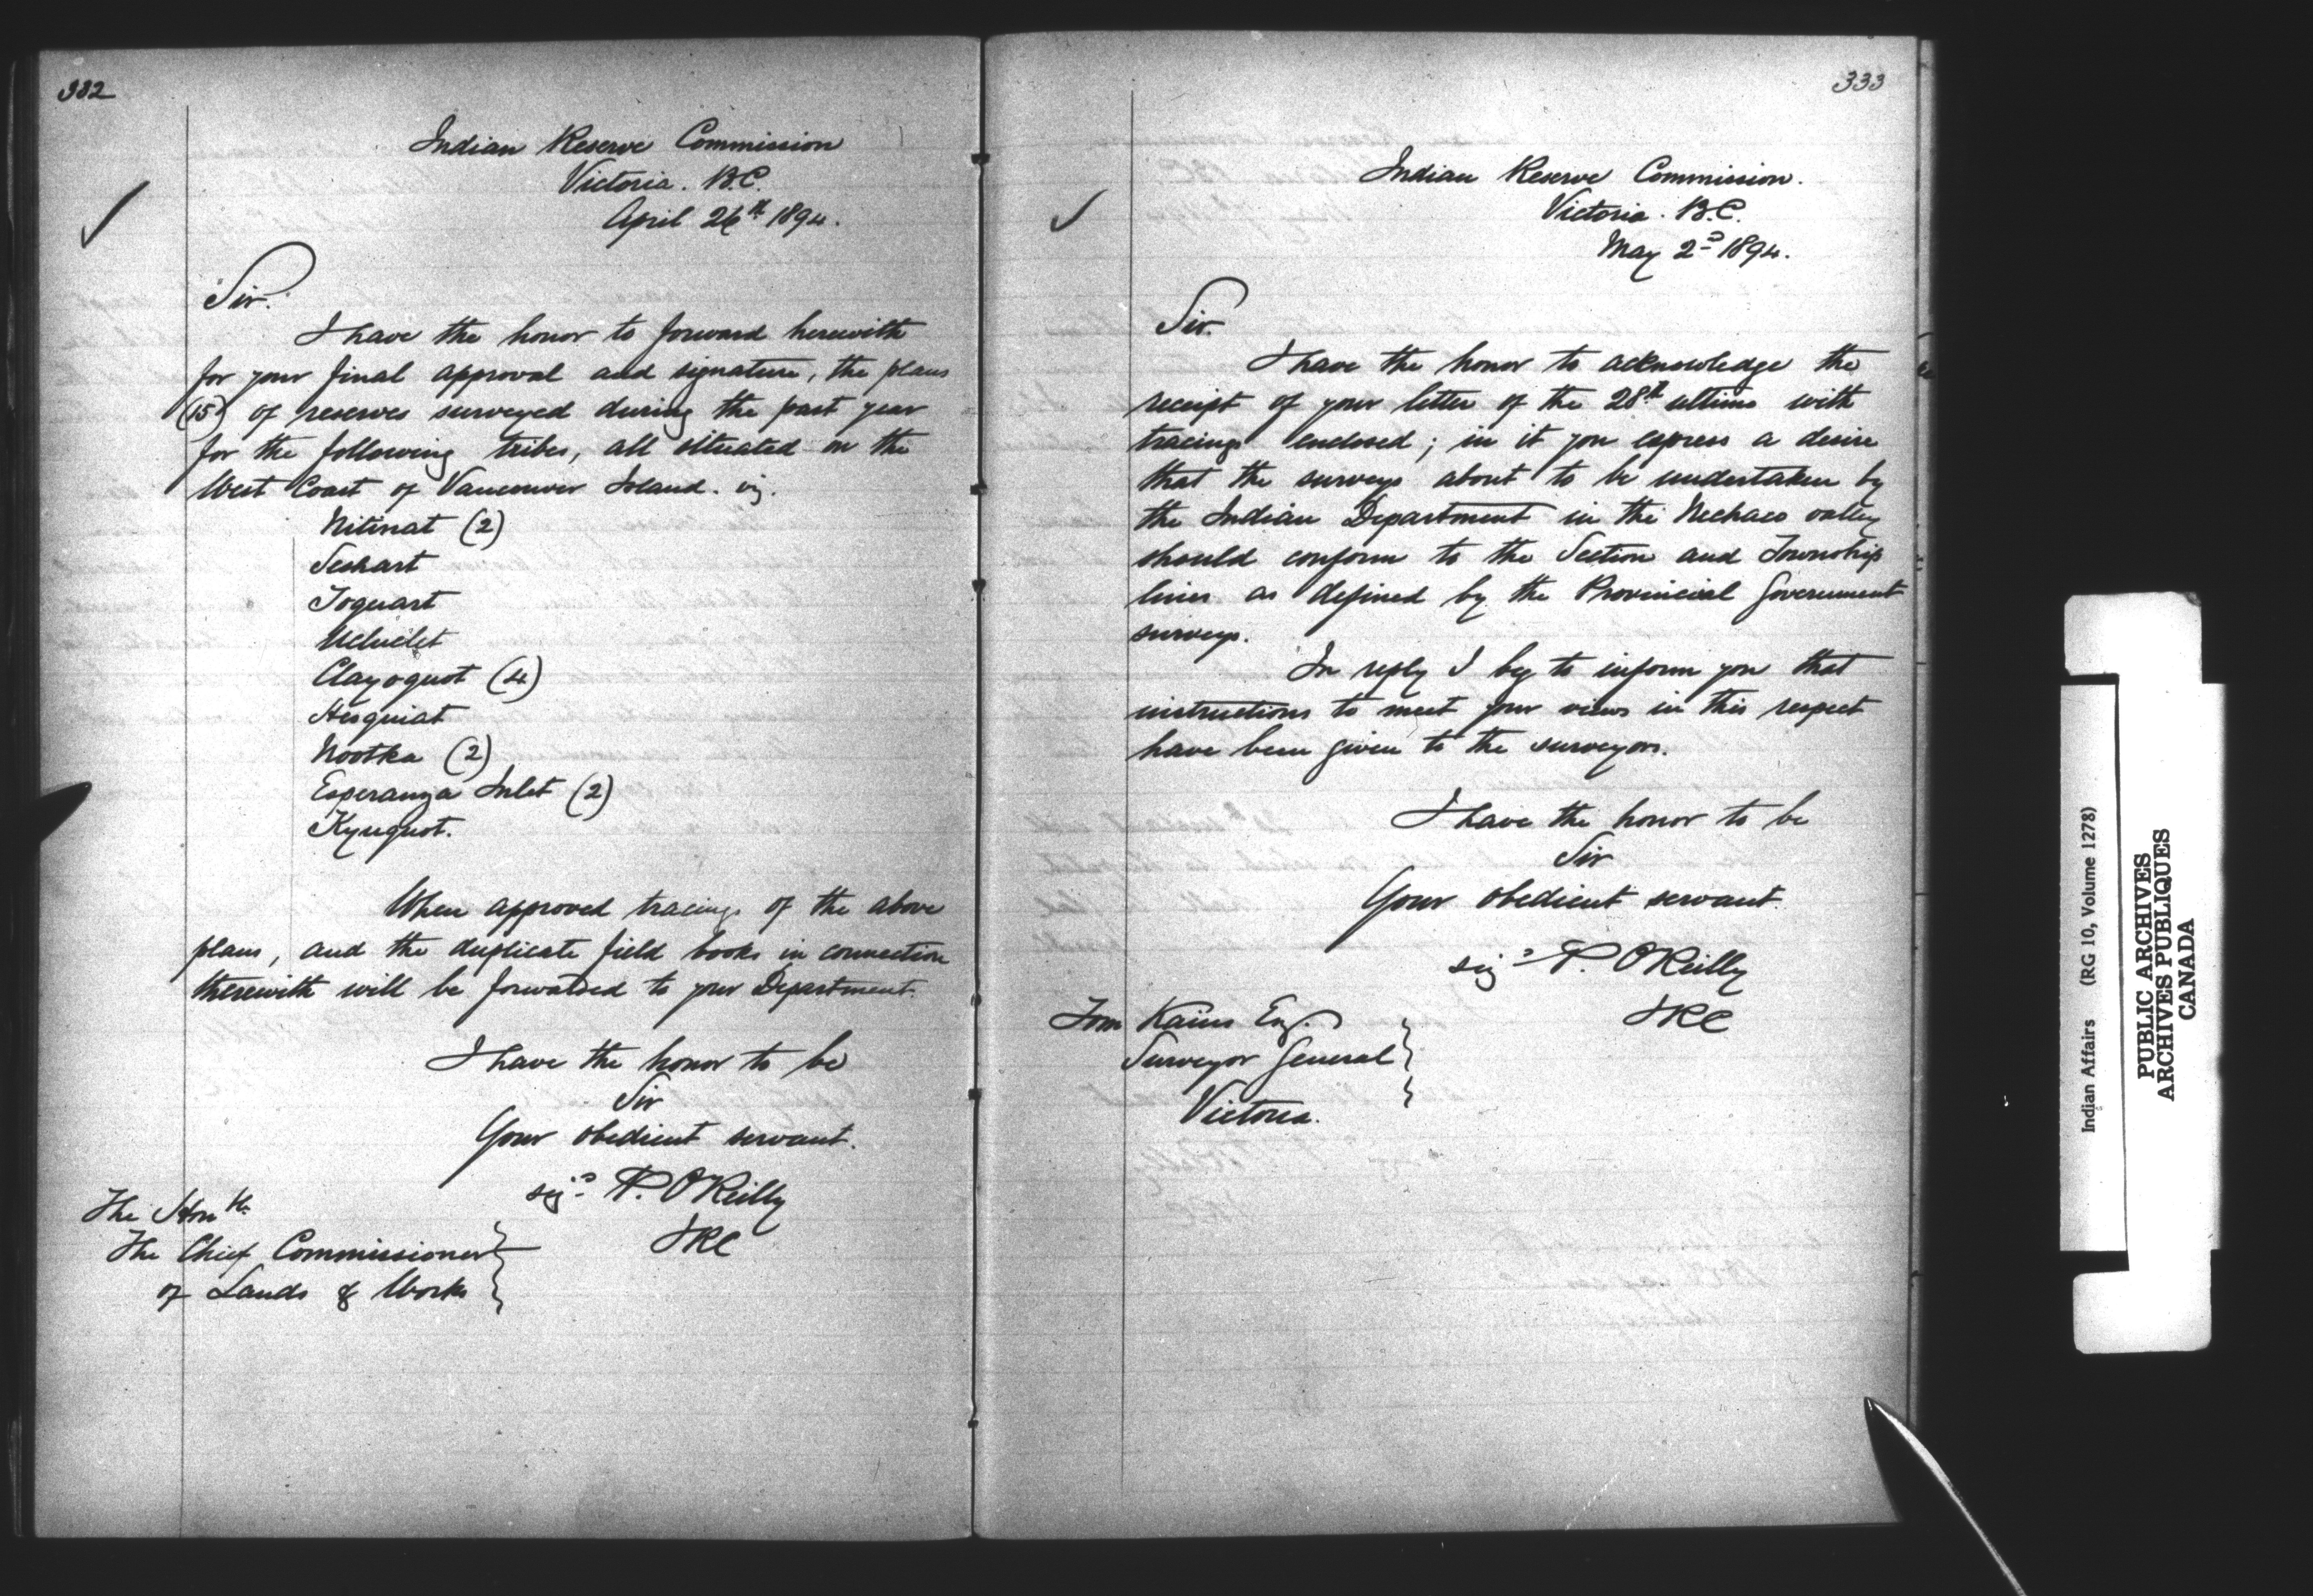 332
Indian Reserve Commission
Victoria. B.C.
April 26th 1894.
Sir.
I have the honor to forward herewith
for your final approval and signature, the plans
(15) of reserves surveyed during the past year
for the following tribes, all situated on the
West Coast of Vancouver Island. viz.
Nitinat (2)
Seshart
Toquart
Ucluelet
Clayoquot (4)
Hesquiat
Nootka (2)
Esperanza Inlet (2)
Kyuquot.
When approved tracings of the above
plans, and the duplicate field books in connection
therewith will be forwarded to your Department.
I have the honor to be
Sir
Your obedient servant.
sigd P. O'Reilly
IRC
The Honble
The Chief Commissioner
of Lands & Works
333
Indian Reserve Commission.
Victoria. B.C.
May 2d 1894.
Sir.
I have the honor to acknowledge the
receipt of your letter of the 28th ultimo with
tracings enclosed; in it you express a desire
that the surveys about to be undertaken by
the Indian Department in the Nechaco valley
should conform to the Section and Township
lines as defined by the Provincial Government
surveys.
In reply I beg to inform you that
instructions to meet your views in this respect
have been given to the surveyors.
I have the honor to be
Sir
Your obedient servant.
sigd P. O'Reilly
IRC
Tom Kains Esq.
Surveyor General
Victoria.
Indian Affairs (RG 10, Volume 1278)
PUBLIC ARCHIVES
ARCHIVES PUBLIQUES
CANADA